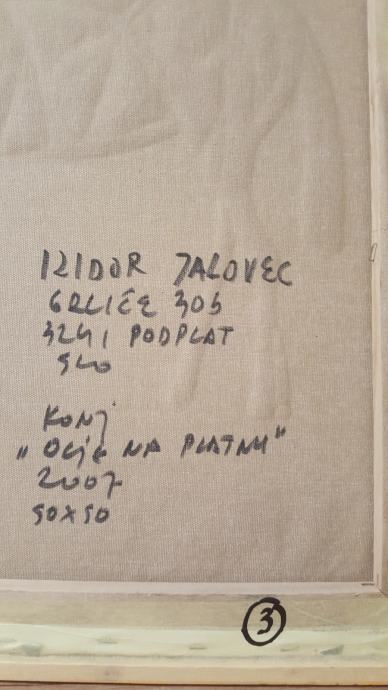 IZIDOR JALOVEC
GRLIČE 30b
3241 PODPLAT
SLO
KONJ
"OLJE NA PLATNU"
2007
50x50
3